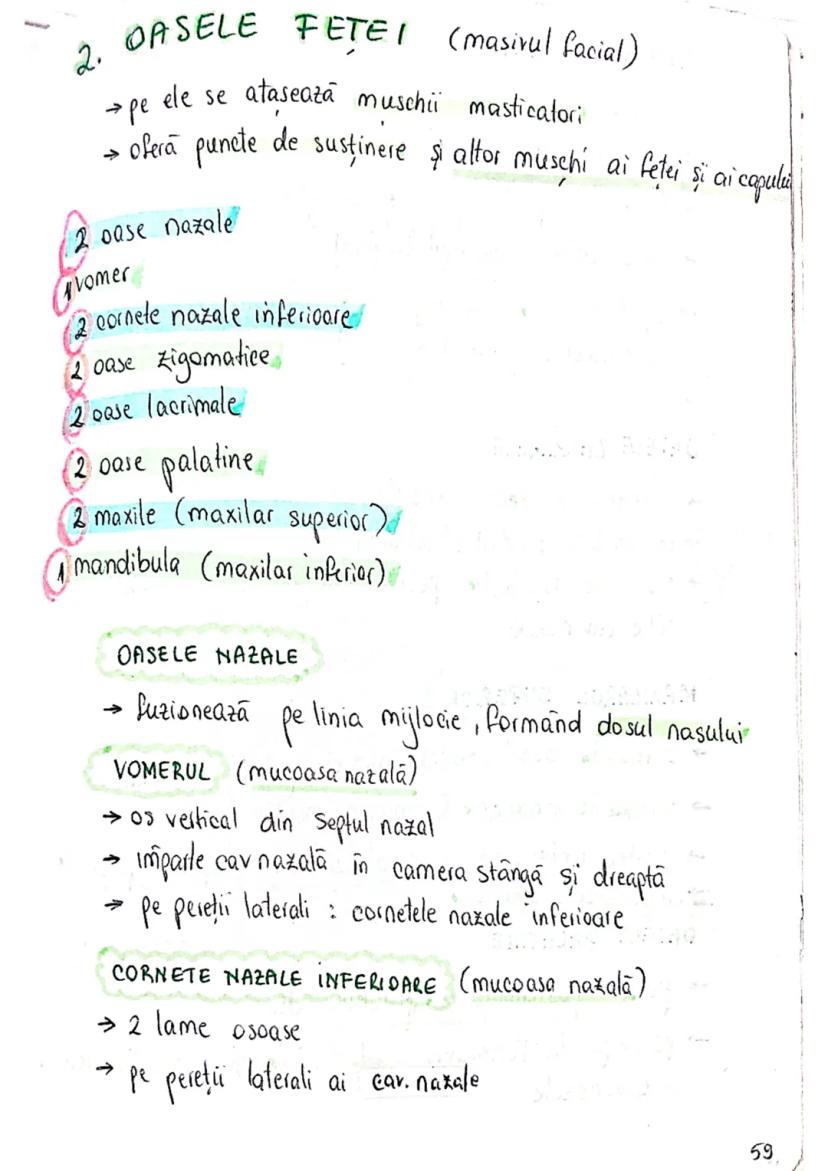 2. OASELE FEȚEI (masivul facial)
→ pe ele se atașează mușchii masticatori
→ oferă puncte de susținere și altor mușchi ai feței și ai capului
2 oase nazale
1 vomer
2 cornete nazale inferioare
2 oase zigomatice
2 oase lacrimale
2 oase palatine
2 maxile (maxilar superior)
1 mandibula (maxilar inferior)
OASELE NAZALE
→ fuzionează pe linia mijlocie, formând dosul nasului
VOMERUL (mucoasa nazală)
→ os vertical din septul nazal
→ împarte cav nazală în camera stângă și dreaptă
→ pe pereții laterali : cornetele nazale inferioare
CORNETE NAZALE INFERIOARE (mucoasa nazală)
→ 2 lame osoase
→ pe pereții laterali ai cav. nazale
59